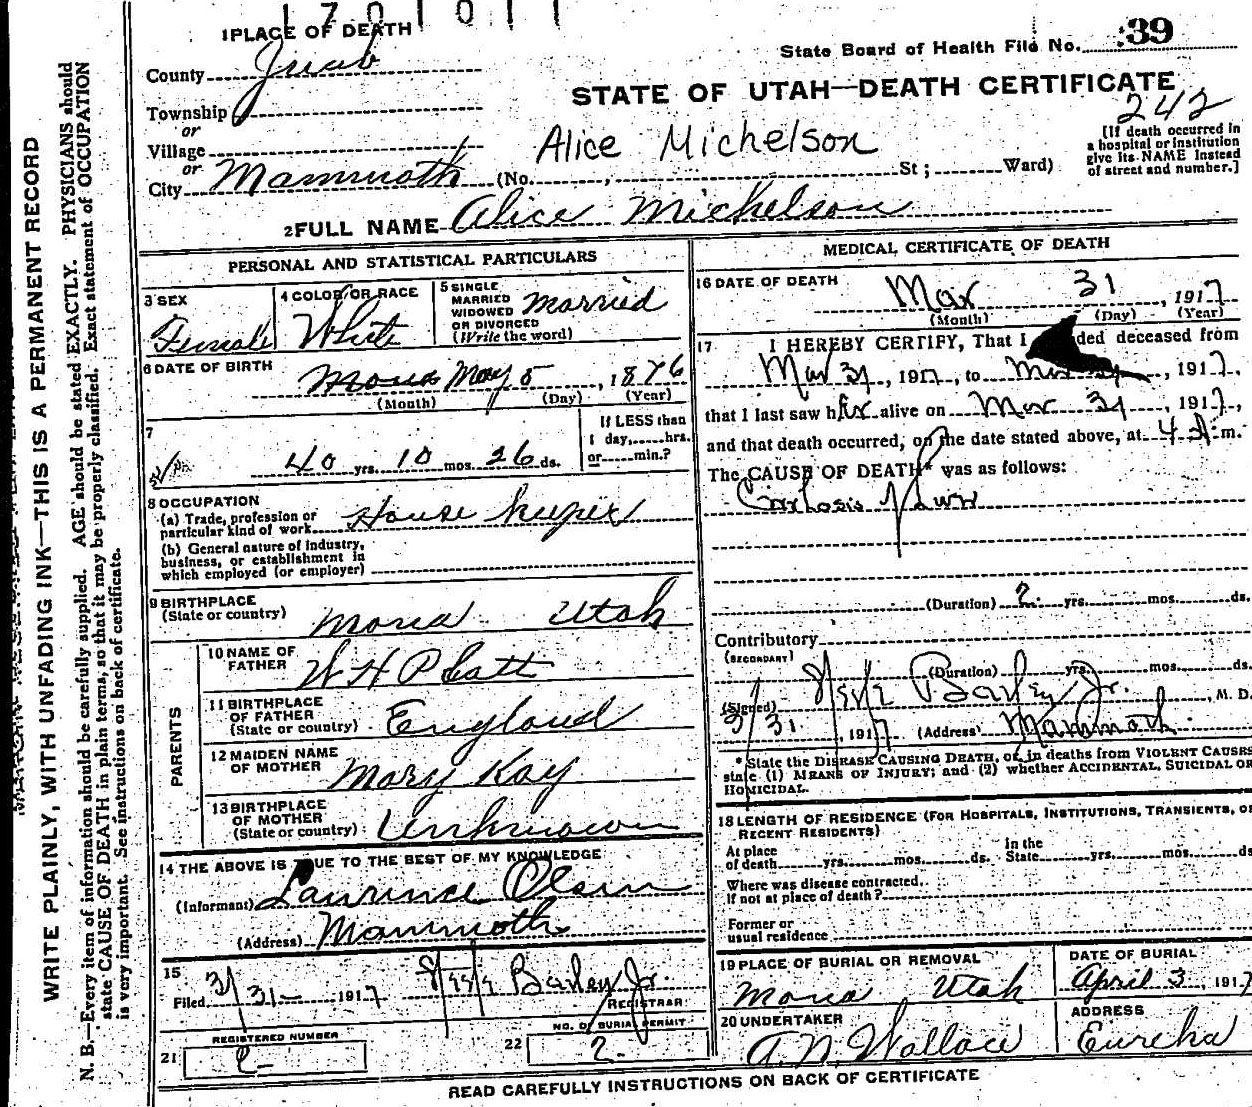 1 PLACE OF DEATH
State Board of Health File No. 39
County Juab
STATE OF UTAH—DEATH CERTIFICATE
242
Township
or
Village
or
City Mammoth (No. , St; Ward)
Alice Michelson
[If death occurred in
a hospital or institution
give its NAME instead
of street and number.]
2 FULL NAME Alice Mickelson
PERSONAL AND STATISTICAL PARTICULARS
3 SEX
Female
4 COLOR OR RACE
White
5 SINGLE
MARRIED
WIDOWED
OR DIVORCED
(Write the word)
married
6 DATE OF BIRTH
Mona May 5, 1876
(Month) (Day) (Year)
7
40 yrs. 10 mos. 26 ds.
If LESS than
1 day, hrs.
or min.?
8 OCCUPATION
(a) Trade, profession or
particular kind of work House keeper
(b) General nature of industry,
business, or establishment in
which employed (or employer)
9 BIRTHPLACE
(State or country) Mona Utah
PARENTS
10 NAME OF
FATHER W H Platt
11 BIRTHPLACE
OF FATHER
(State or country) England
12 MAIDEN NAME
OF MOTHER Mary Kay
13 BIRTHPLACE
OF MOTHER
(State or country) Unknown
14 THE ABOVE IS TRUE TO THE BEST OF MY KNOWLEDGE
(Informant) Laurince Olsen
(Address) Mammoth
15
Filed 3/31 1917 Bailey Jr.
REGISTRAR
REGISTERED NUMBER
21 2
NO. OF BURIAL PERMIT
22 2
MEDICAL CERTIFICATE OF DEATH
16 DATE OF DEATH
Mar 31, 1917
(Month) (Day) (Year)
17 I HEREBY CERTIFY, That I ded deceased from
Mar 31, 1917, to Mar 31, 1917,
that I last saw her alive on Mar 31, 1917,
and that death occurred, on the date stated above, at 4 A m.
The CAUSE OF DEATH* was as follows:
Cirrhosis of Liver
(Duration) 2 yrs. mos. ds.
Contributory
(SECONDARY)
(Duration) yrs. mos. ds.
(Signed) Bailey Jr., M. D.
3/31, 1917 (Address) Mammoth
* State the DISEASE CAUSING DEATH, or, in deaths from VIOLENT CAUSES
state (1) MEANS OF INJURY; and (2) whether ACCIDENTAL, SUICIDAL OR
HOMICIDAL.
18 LENGTH OF RESIDENCE (FOR HOSPITALS, INSTITUTIONS, TRANSIENTS, OR
RECENT RESIDENTS)
At place
of death yrs. mos. ds.
In the
State yrs. mos. ds
Where was disease contracted,
if not at place of death?
Former or
usual residence
19 PLACE OF BURIAL OR REMOVAL
Mona Utah
DATE OF BURIAL
April 3, 1917
20 UNDERTAKER
A. N. Wallace
ADDRESS
Eureka
READ CAREFULLY INSTRUCTIONS ON BACK OF CERTIFICATE
WRITE PLAINLY, WITH UNFADING INK—THIS IS A PERMANENT RECORD
N. B.—Every item of information should be carefully supplied. AGE should be stated EXACTLY. PHYSICIANS should
state CAUSE OF DEATH in plain terms, so that it may be properly classified. Exact statement of OCCUPATION
is very important. See instructions on back of certificate.